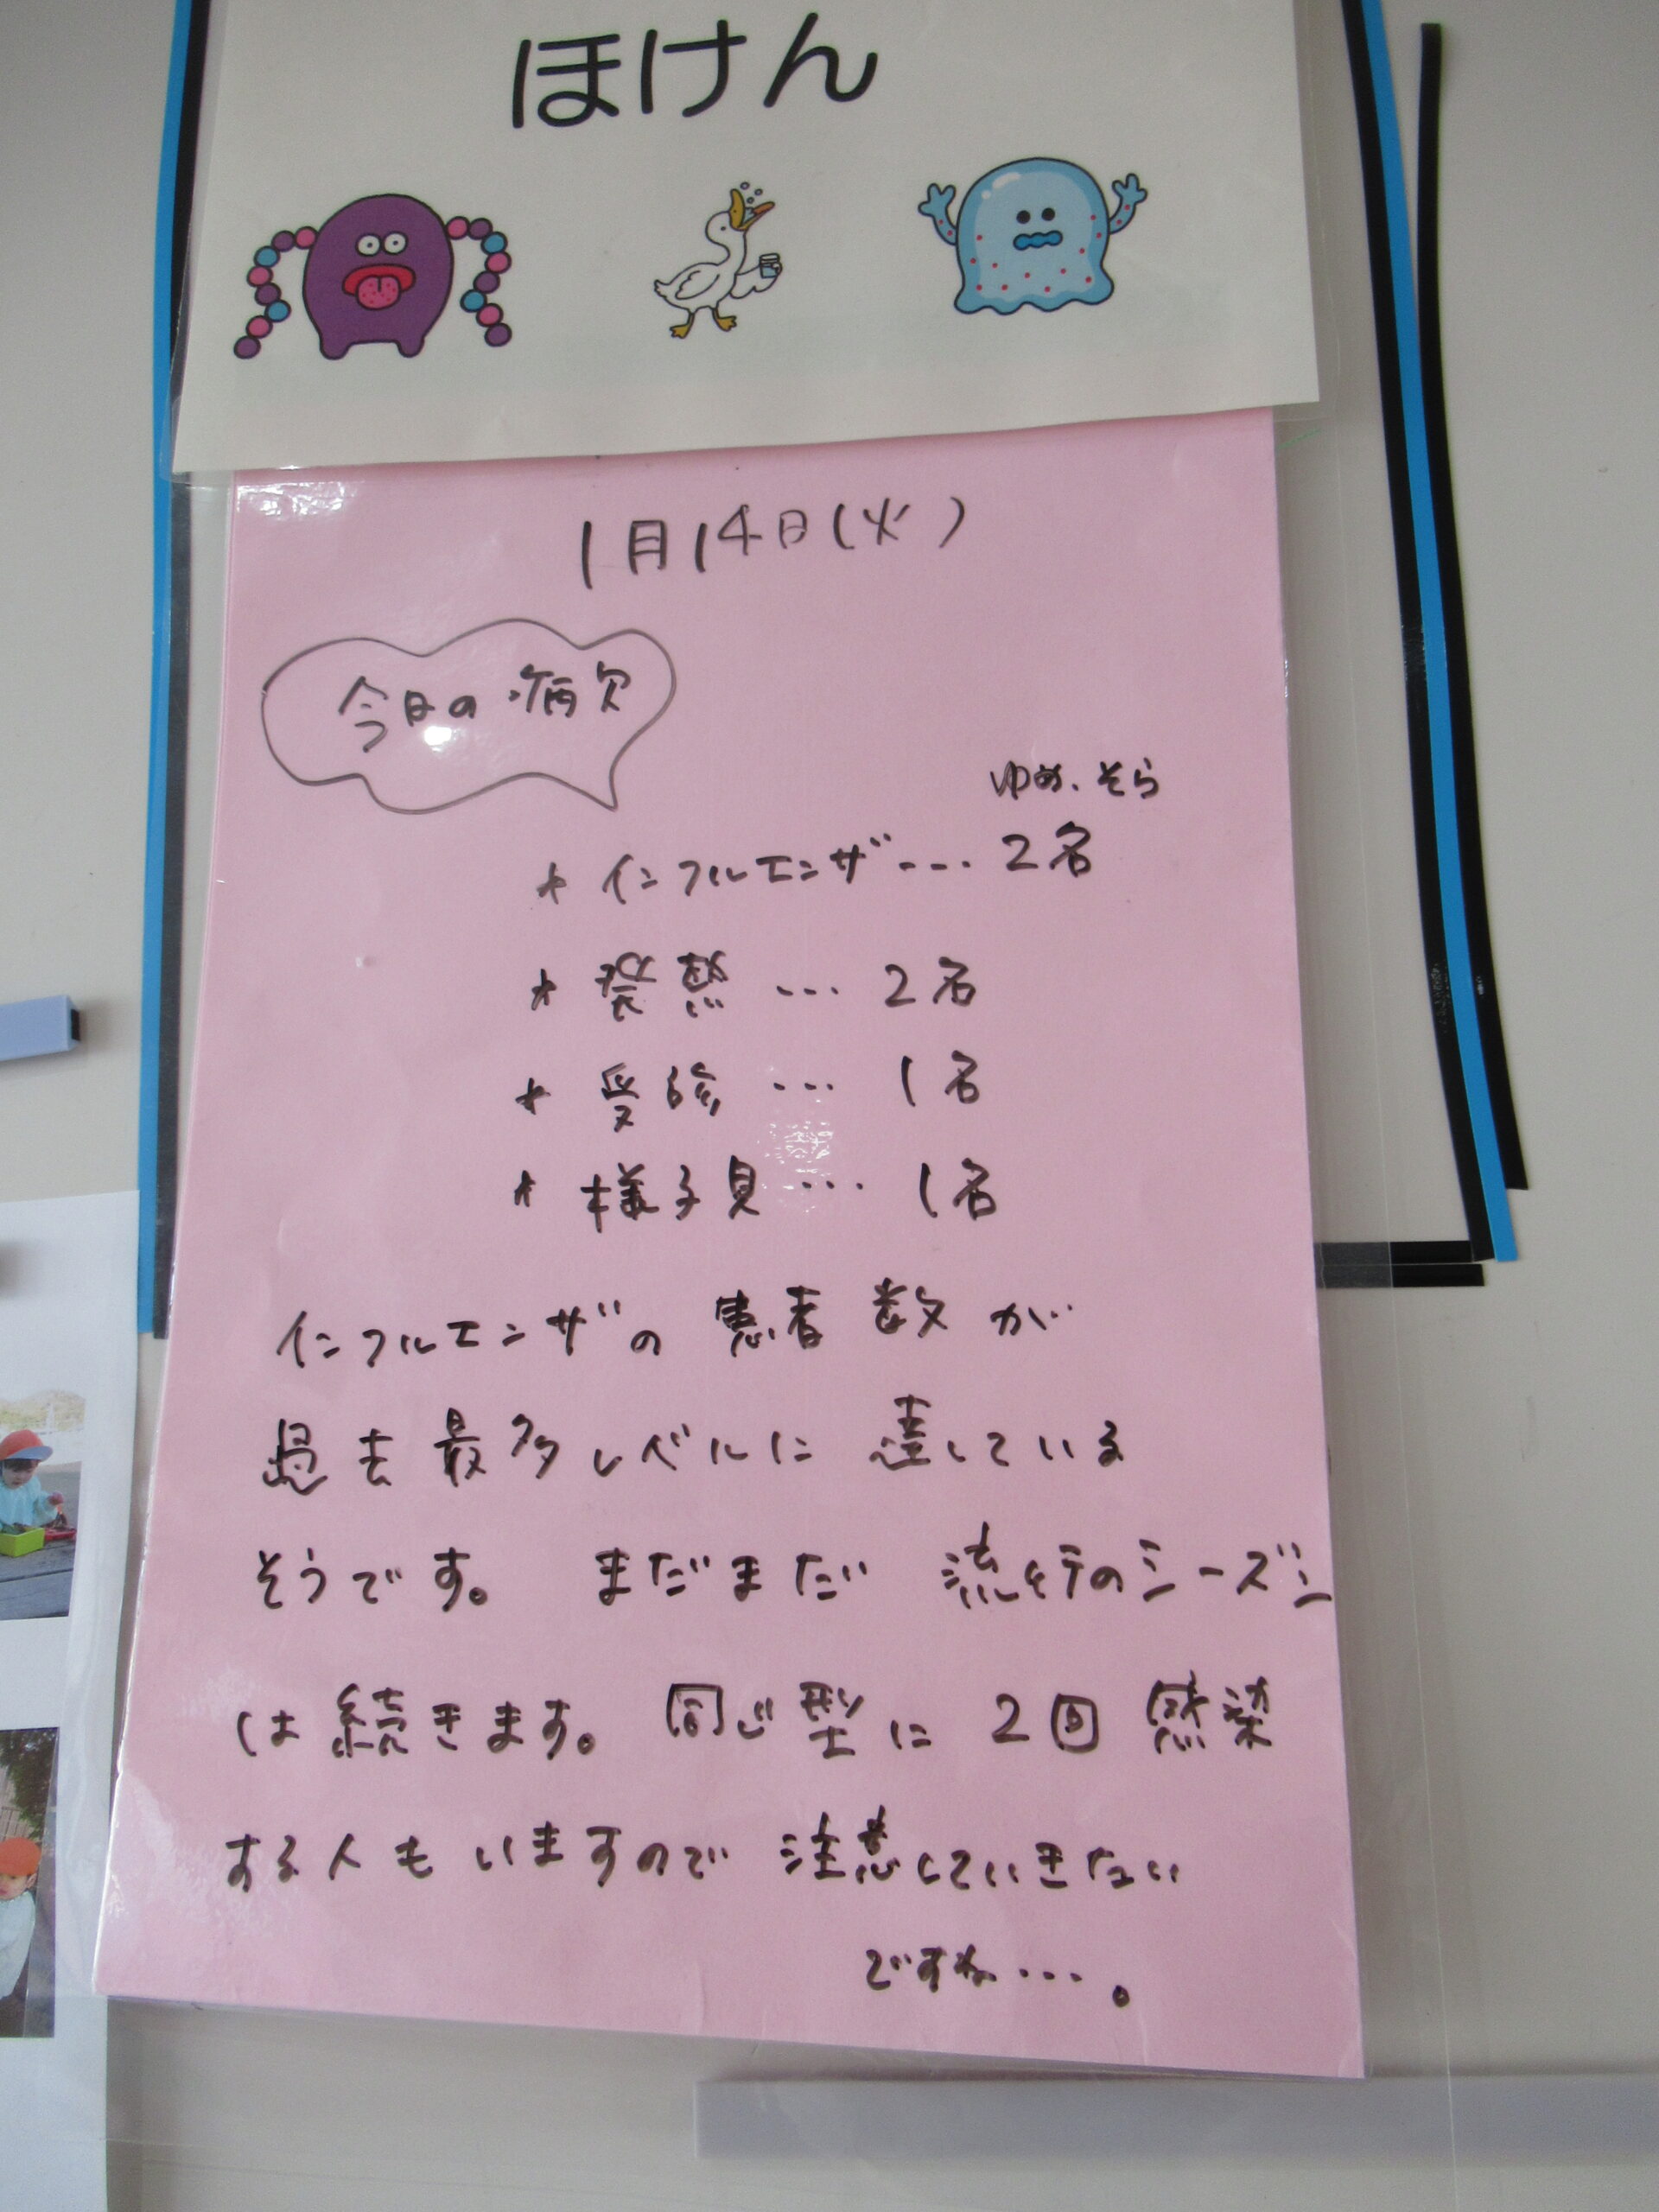 ほけん
1月14日(火)
今日の病欠
ゆめ、そら
* インフルエンザ... 2名
* 発熱 ... 2名
* 受診 ... 1名
* 様子見 ... 1名
インフルエンザの患者数が
過去最多レベルに達している
そうです。 まだまだ 流行のシーズン
は続きます。 同じ型に 2回 感染
する人もいますので 注意していきたい
ですね...。